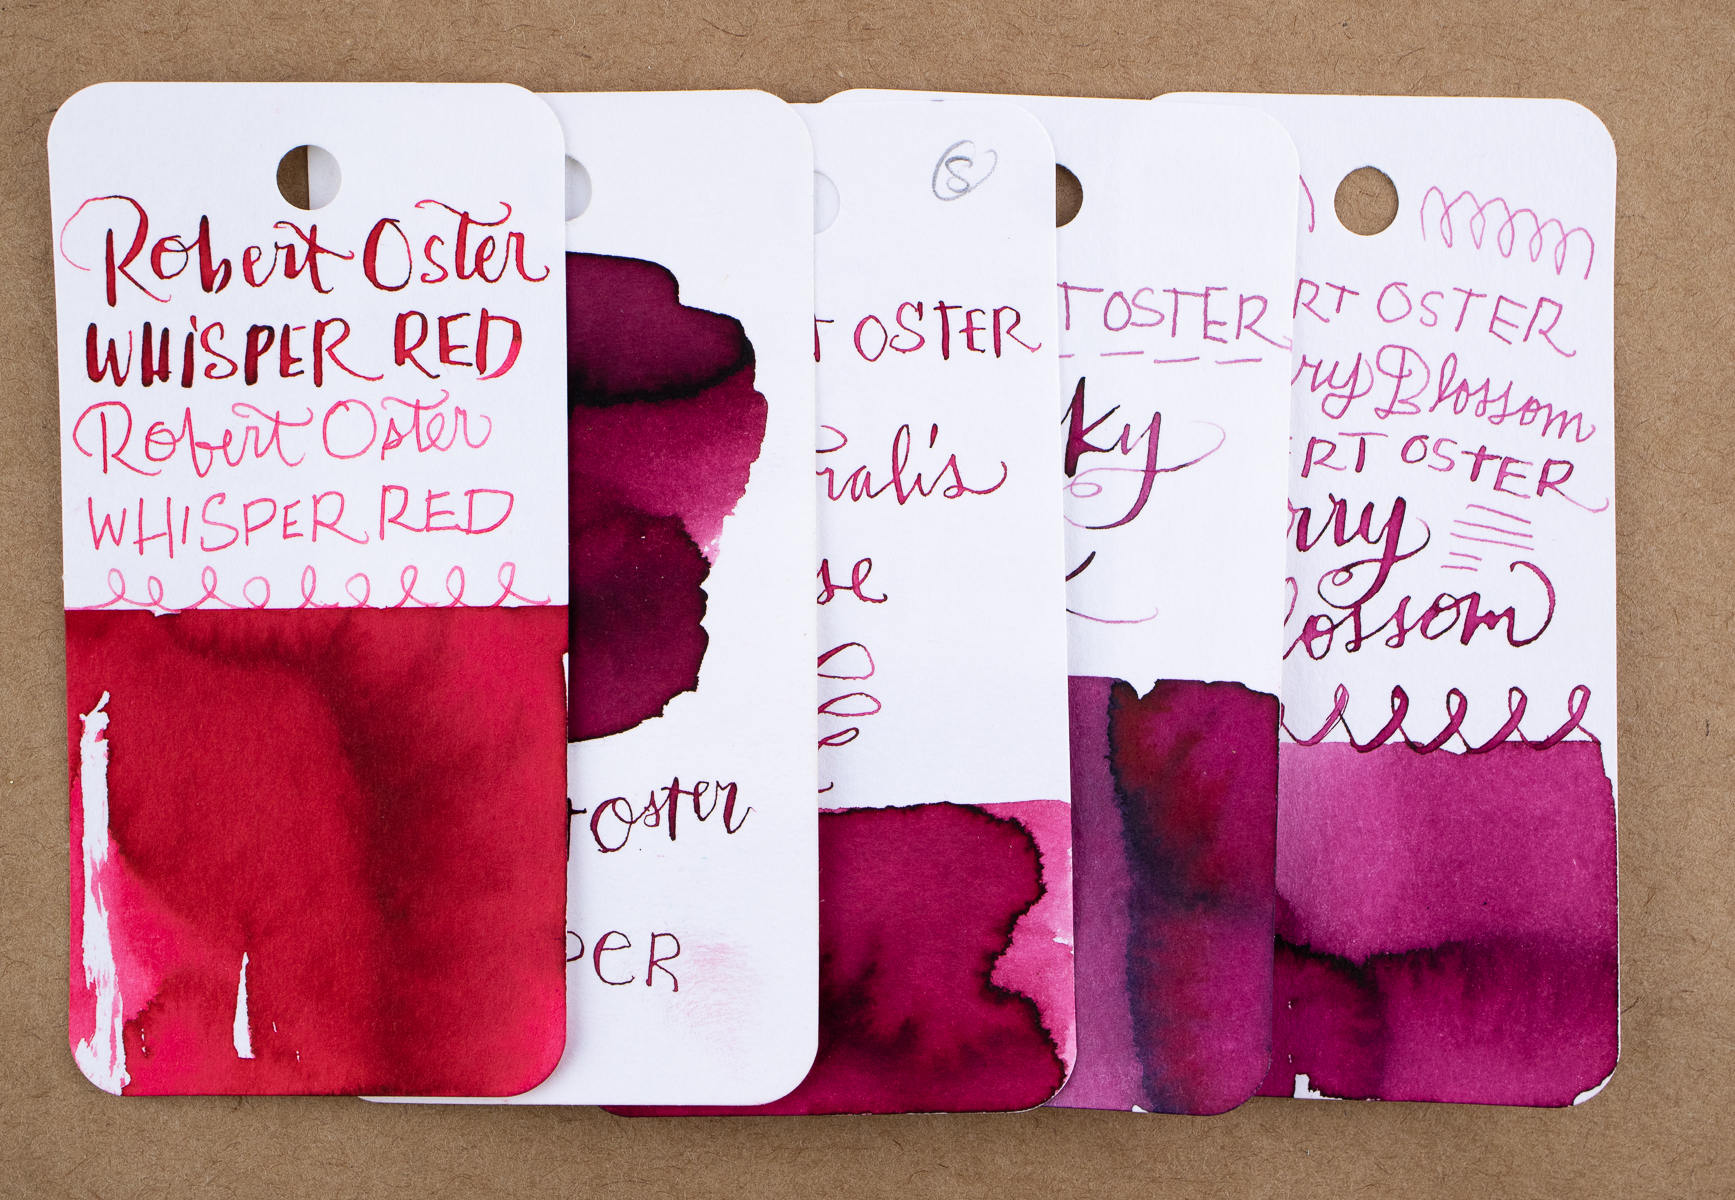 Robert Oster
WHISPER RED
Robert Oster
WHISPER RED
Oster
PER
S
T OSTER
ralis
se
T OSTER
ky
RT OSTER
rry Blossom
RT OSTER
rry
lossom